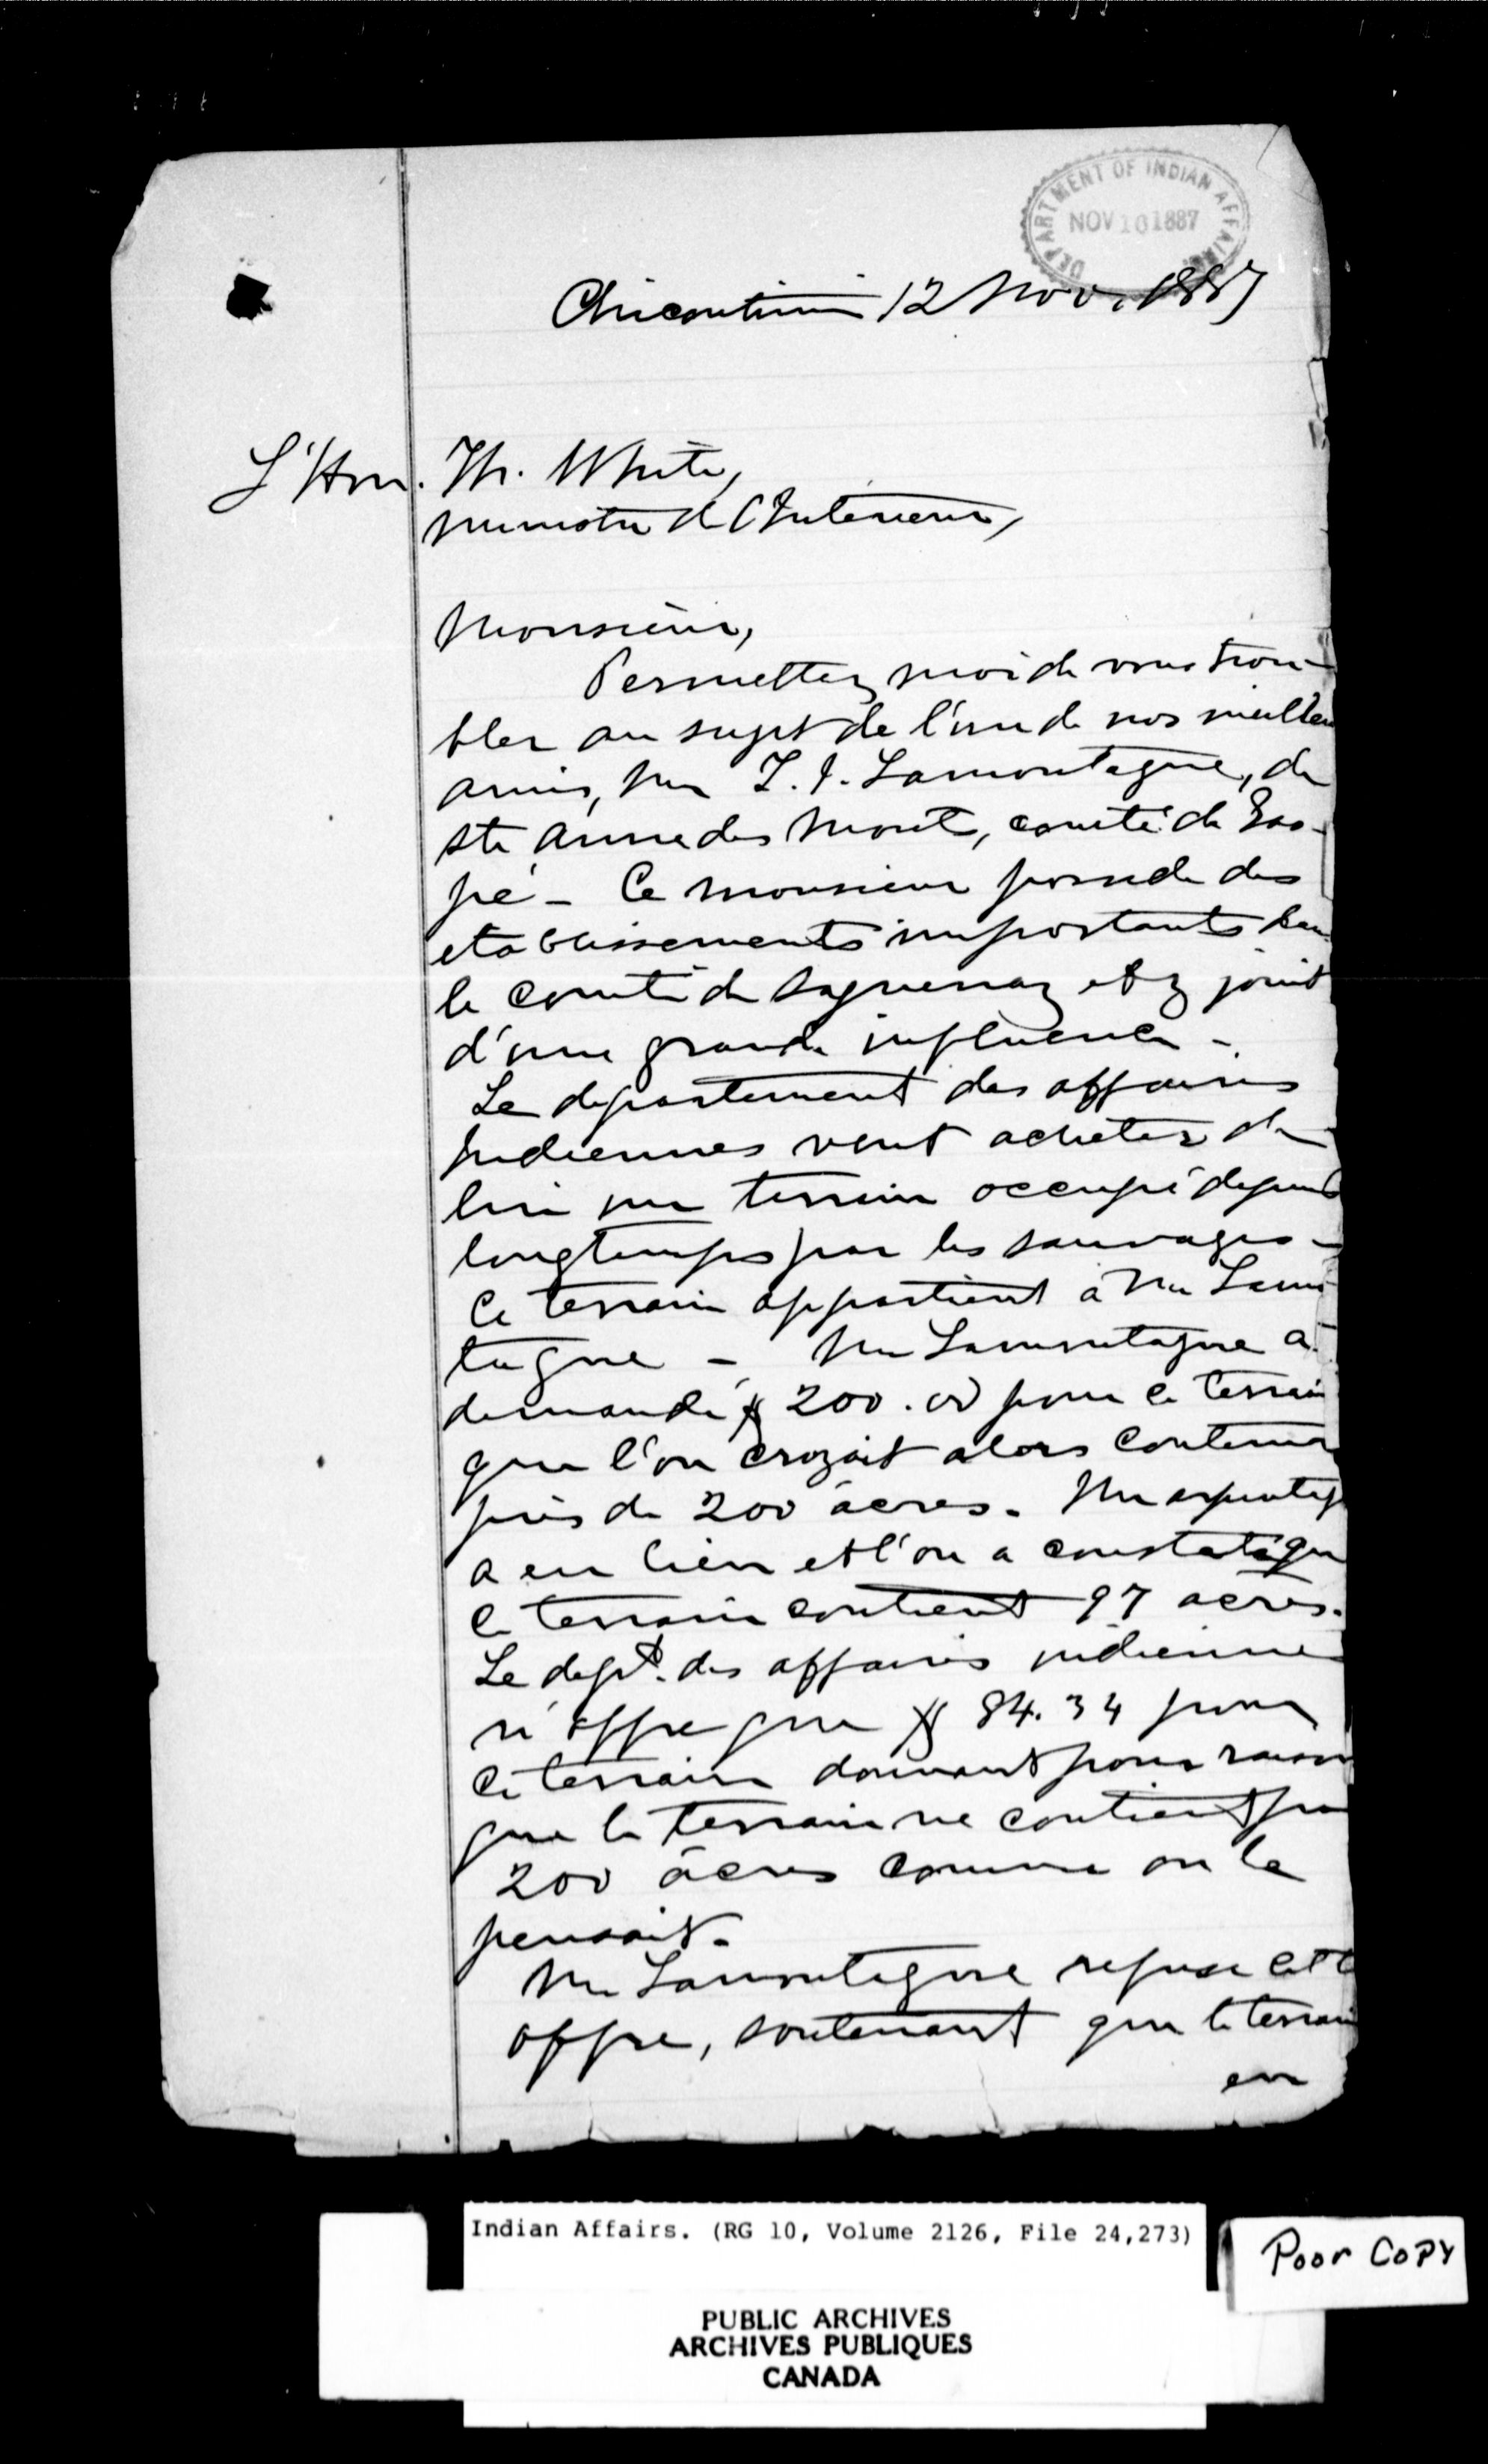 DEPARTMENT OF INDIAN AFFAIRS
NOV 16 1887
Chicoutimi 12 Nov. 1887
L'Hon. Th. White,
Ministre de l'Intérieur,
Monsieur,
Permettez moi de vous trou-
bler au sujet de l'un de nos meilleu
amis, Mr T. J. Lamontagne, de
Ste Anne des Monts, comté de Gas-
pé - Ce monsieur possede des
etablissements importants dan
le comté de Saguenay et y jouit
d'une grande influence -
Le departement des affaires
Indiennes veut acheter de
lui un terrain occupé depuis
longtemps par les sauvages -
Ce terrain appartient à Mr Lamon
tagne - Mr Lamontagne a
demandé $ 200.00 pour ce terrain
que l'on croyait alors contenir
près de 200 acres. Un arpentag
a eu lieu et l'on a constaté que
ce terrain contient 97 acres.
Le dept. des affaires indienne
n'offre que $ 84.34 pour
ce terrain donnant pour raison
que le terrain ne contient pa
200 acres comme on le
pensait.
Mr Lamontagne refuse cette
offre, soutenant que le terrain
en
Indian Affairs. (RG 10, Volume 2126, File 24,273)
Poor Copy
PUBLIC ARCHIVES
ARCHIVES PUBLIQUES
CANADA